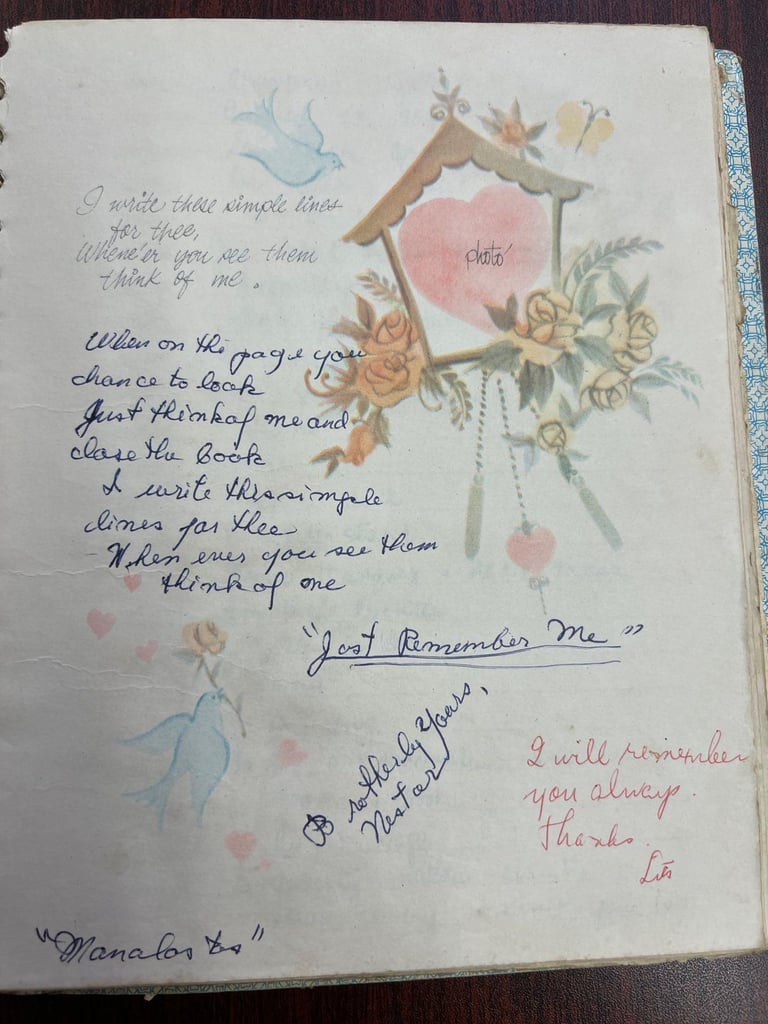 I write these simple lines
for thee,
Whene'er you see them
think of me.
photo
When on the page you
chance to look
Just think of me and
close the book
I write this simple
lines for thee
When ever you see them
think of me
"Just Remember Me"
Brotherly Yours,
Nestor
I will remember
you always.
Thanks.
"Manalastas"